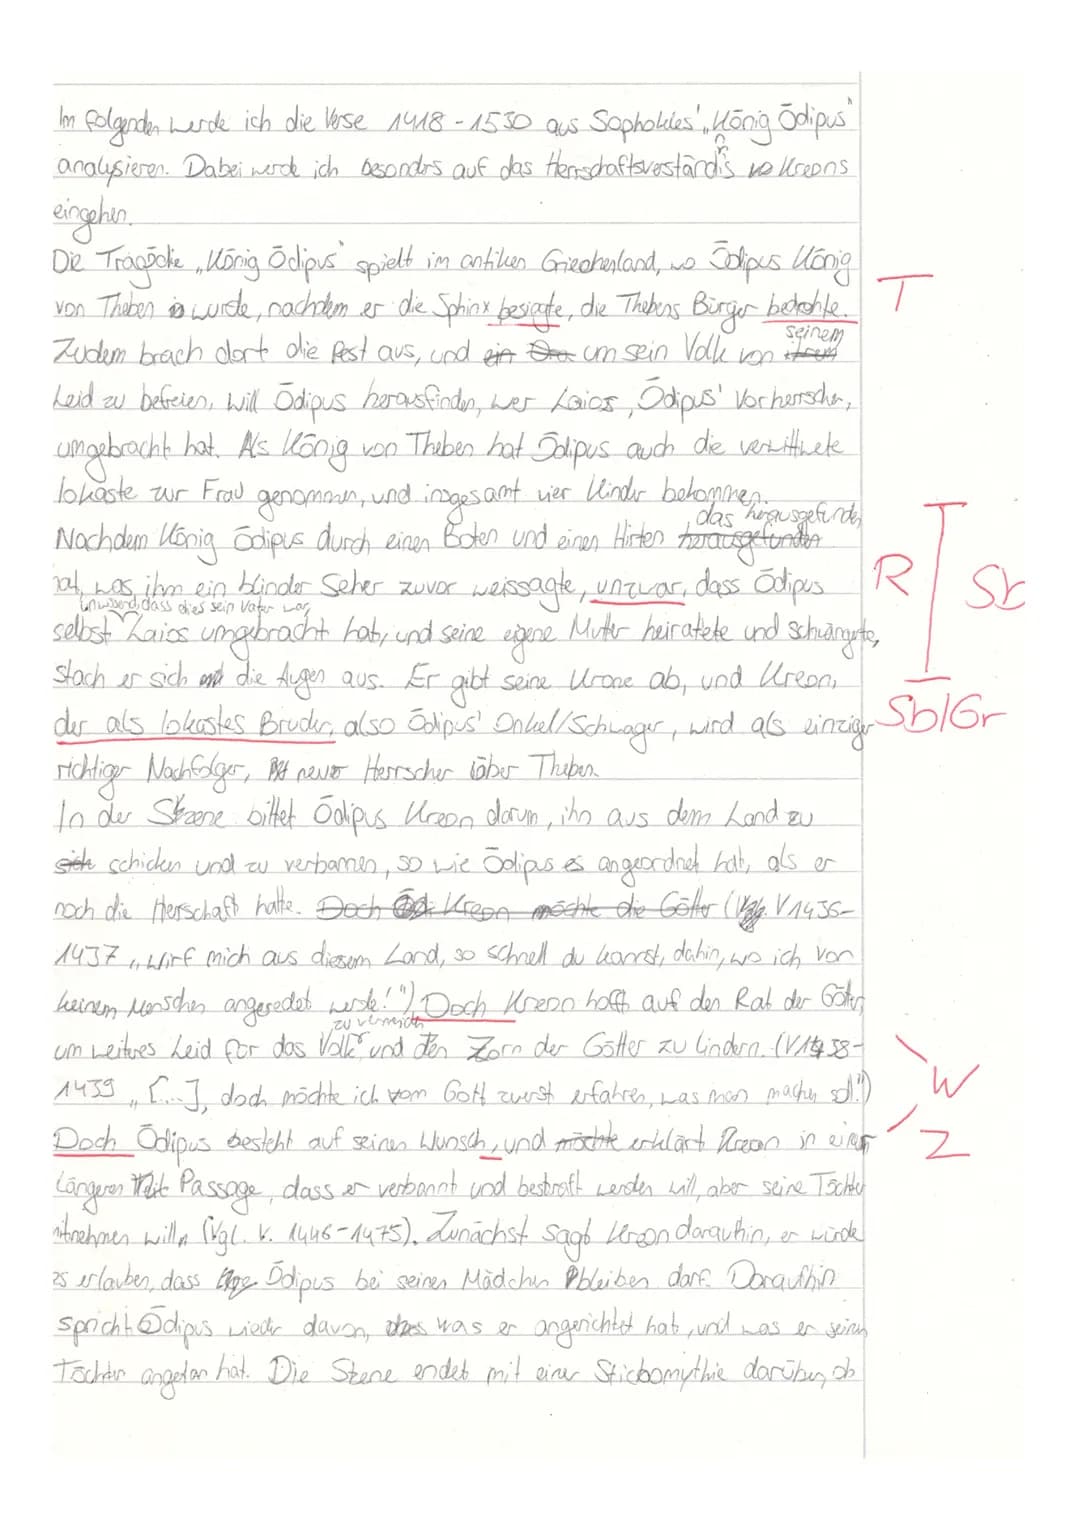 Im folgenden werde ich die Verse 1418 - 1530 aus Sophokles' „König Ödipus"
analysieren. Dabei werde ich besonders auf das Herrschaftsverständnis Kreons
eingehen.
Die Tragödie „König Ödipus" spielt im antiken Griechenland, wo Ödipus König
von Theben wurde, nachdem er die Sphinx besiegte, die Thebens Bürger bedrohte. T
Zudem brach dort die Pest aus, und um sein Volk von seinem
Leid zu befreien, will Ödipus herausfinden, wer Laios, Ödipus' Vorherrscher,
umgebracht hat. Als König von Theben hat Ödipus auch die verwittwete
Iokaste zur Frau genommen, und insgesamt vier Kinder bekommen.
Nachdem König Ödipus durch einen Boten und einen Hirten das herausgefunden
hat, was ihm ein blinder Seher zuvor weissagte, unzwar, dass Ödipus R Sb
selbst unwissend, dass dies sein Vater war, Laios umgebracht hat, und seine eigene Mutter heiratete und schwängerte,
stach er sich die Augen aus. Er gibt seine Krone ab, und Kreon,
der als Iokastes Bruder, also Ödipus' Onkel/Schwager, wird als einziger Sb/Gr
richtiger Nachfolger, neuer Herrscher über Theben.
In der Szene bittet Ödipus Kreon darum, ihn aus dem Land zu
schicken und zu verbannen, so wie Ödipus es angeordnet hat, als er
noch die Herrschaft hatte. Doch Kreon möchte die Götter (Vgl. V 1436-
1437 „Wirf mich aus diesem Land, so schnell du kannst, dahin, wo ich von
keinem Menschen angeredet werde!") Doch Kreon hofft auf den Rat der Götter,
um weiteres Leid für das Volk zu vermeiden und den Zorn der Götter zu lindern. (V 1438-
1439 „[...], doch möchte ich vom Gott zuerst erfahren, was man machen soll.") W
Doch Ödipus besteht auf seinen Wunsch, und erklärt Kreon in einer Z
längeren Passage, dass er verbannt und bestraft werden will, aber seine Töchter
mitnehmen will (Vgl. V. 1446-1475). Zunächst sagt Kreon daraufhin, er würde
es erlauben, dass Ödipus bei seinen Mädchen bleiben darf. Daraufhin
spricht Ödipus wieder davon, was er angerichtet hat, und was er seinen
Töchtern angetan hat. Die Szene endet mit einer Stichomythie darüber, ob